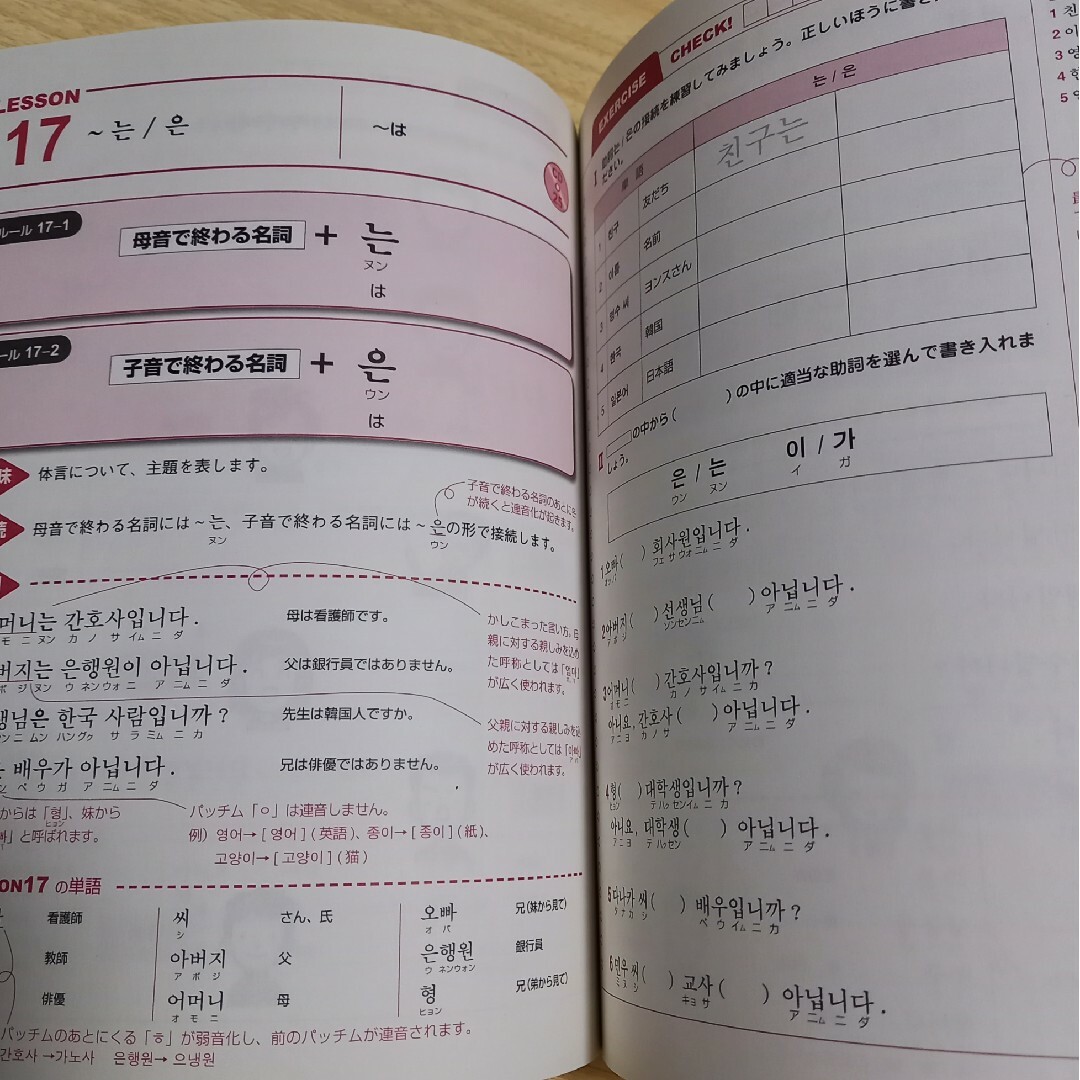 LESSON
17 ~는 / 은 ~は
CD 26
ルール 17-1
母音で終わる名詞 + 는
ヌン
は
ール 17-2
子音で終わる名詞 + 은
ウン
は
味 体言について、主題を表します。
子音で終わる名詞のあとに은
が続くと連音化が起きます。
続 母音で終わる名詞には~는、子音で終わる名詞には~은の形で接続します。
ヌン ウン
머니는 간호사입니다. 母は看護師です。
モ ニ ヌン カ ノ サ イム ニ ダ
かしこまった言い方。母
親に対する親しみを込め
た呼称としては「엄마」
が広く使われます。
버지는 은행원이 아닙니다. 父は銀行員ではありません。
ボ ジ ヌン ウ ネンウォニ ア ニム ニ ダ
생님은 한국 사람입니까? 先生は韓国人ですか。
ンニ ムン ハングゥ サ ラ ミム ニ カ
父親に対する親しみを込
めた呼称としては「아빠」
が広く使われます。
배우가 아닙니다. 兄は俳優ではありません。
ペ ウ ガ ア ニム ニ ダ
からは「형」、妹から
ヒョン
」と呼ばれます。
パッチム「ㅇ」は連音しません。
例) 영어→[영어](英語)、종이→[종이](紙)、
고양이→[고양이](猫)
ON17 の単語
看護師 씨 さん、氏 오빠 兄(妹から見て)
シ オ パ
教師 아버지 父 은행원 銀行員
ア ボ ジ ウ ネンウォン
俳優 어머니 母 형 兄(弟から見て)
オ モ ニ ヒョン
パッチムのあとにくる「ㅎ」が弱音化し、前のパッチムが連音されます。
간호사→가노사 은행원→으냉원
EXERCISE CHECK!
I 助詞는/은の接続を練習してみましょう。正しいほうに書き
ださい。
単語 는/은
1 친구 友だち 친구는
2 이름 名前
3 영수 씨 ヨンスさん
4 한국 韓国
5 일본어 日本語
II の中から( )の中に適当な助詞を選んで書き入れま
しょう。
은 / 는 이 / 가
ウン ヌン イ ガ
1 오빠( ) 회사원입니다.
フェ サ ウォニム ニ ダ
2 아버지( ) 선생님( ) 아닙니다.
ア ボ ジ ソンセンニム ア ニム ニ ダ
3 어머니( ) 간호사입니까?
オ モ ニ カ ノ サ イム ニ カ
아니요, 간호사( ) 아닙니다.
ア ニ ヨ カ ノ サ ア ニム ニ ダ
4 형( ) 대학생입니까?
ヒョン テ ハㇰセンイム ニ カ
아니요, 대학생( ) 아닙니다.
ア ニ ヨ テ ハㇰセン ア ニム ニ ダ
5 다나카 씨( ) 배우입니까?
タ ナ カ シ ペ ウ イム ニ カ
6 민우 씨( ) 교사( ) 아닙니다.
ミ ヌ シ キョ サ ア ニム ニ ダ
1 친
2 이
3 영
4 한
5